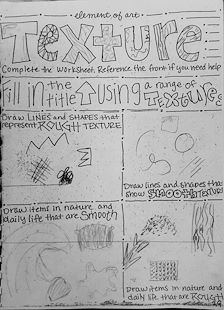 element of art
Texture
Complete the worksheet. Reference the front if you need help
Fill in the title ↑ using a range of TEXTURES
Draw LINES and SHAPES that
represent ROUGH TEXTURE
Draw lines and shapes that
show SMOOTH TEXTURE
Draw items in nature and
daily life that are Smooth
Draw items in nature and
daily life that are ROUGH